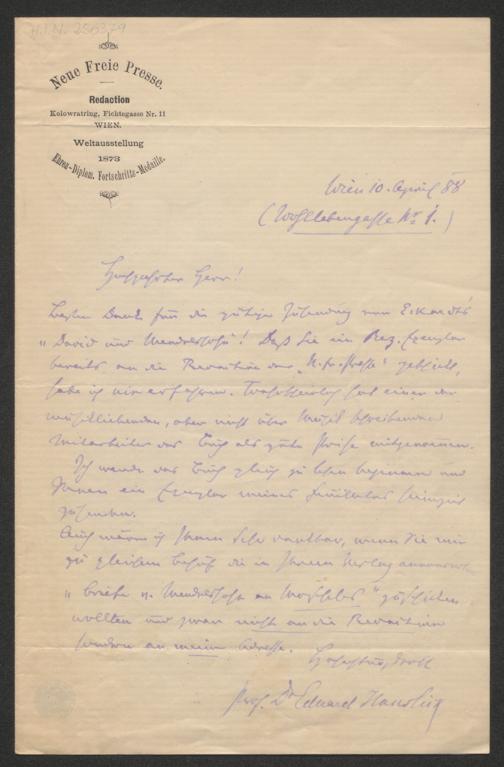 H.I.N. 256379
Neue Freie Presse.
Redaction
Kolowratring, Fichtegasse Nr. 11
WIEN.
Weltausstellung
1873
Ehren-Diplom. Fortschritts-Medaille.
Wien 10. April 88
(Wohllebengasse Nr 1.)
Hochgeehrter Herr!
Besten Dank für die gütige Zusendung von Eckardt's
"David und Mendelssohn"! Daß Sie ein Rez. Exemplar
bereits an die Redaction der "N. fr. Presse" geschickt,
habe ich nie erfahren. Wahrscheinlich hat einer der
aber nicht über Musik schreibenden
Mitarbeiter das Buch als gute Prise mitgenommen.
Ich werde das Buch gleich zu lesen beginnen und
Ihnen ein Exemplar meines Feuilletons
zusenden.
Auch wäre ich Ihnen sehr dankbar, wenn Sie mir
zu gleichem Behuf die in Ihrem Verlag
"Briefe v. Mendelssohn an Moscheles" zuschicken
wollten und zwar nicht an die Redaction
sondern an meine Adresse.
Hochachtungsvoll
Prof. Dr Eduard Hanslick